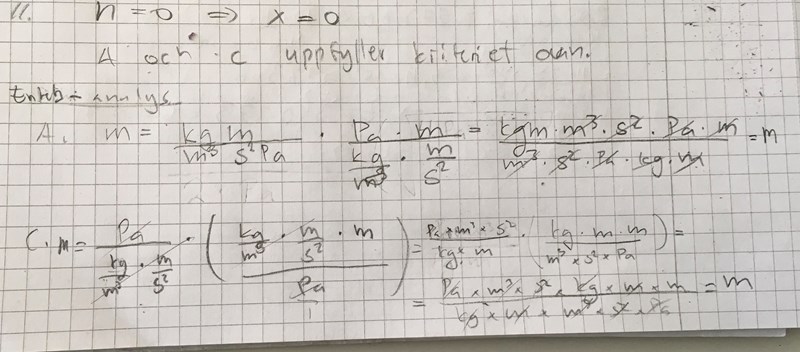 11. h=0 => x=0
A och c uppfyller kriteriet ovan.
Enhetsanalys
A. m = kg m / m³ s² Pa · Pa · m / (kg/m³ · m/s²) = kgm · m³ · s² · Pa · m / m³ · s² · Pa · kg · m = m
C. m = Pa / (kg/m³ · m/s²) · ((kg/m³ · m/s² · m) / (Pa/1)) = Pa × m³ × s² / kg × m · (kg · m · m / m³ × s² × Pa) =
= Pa × m³ × s² × kg × m × m / kg × m × m³ × s² × Pa = m